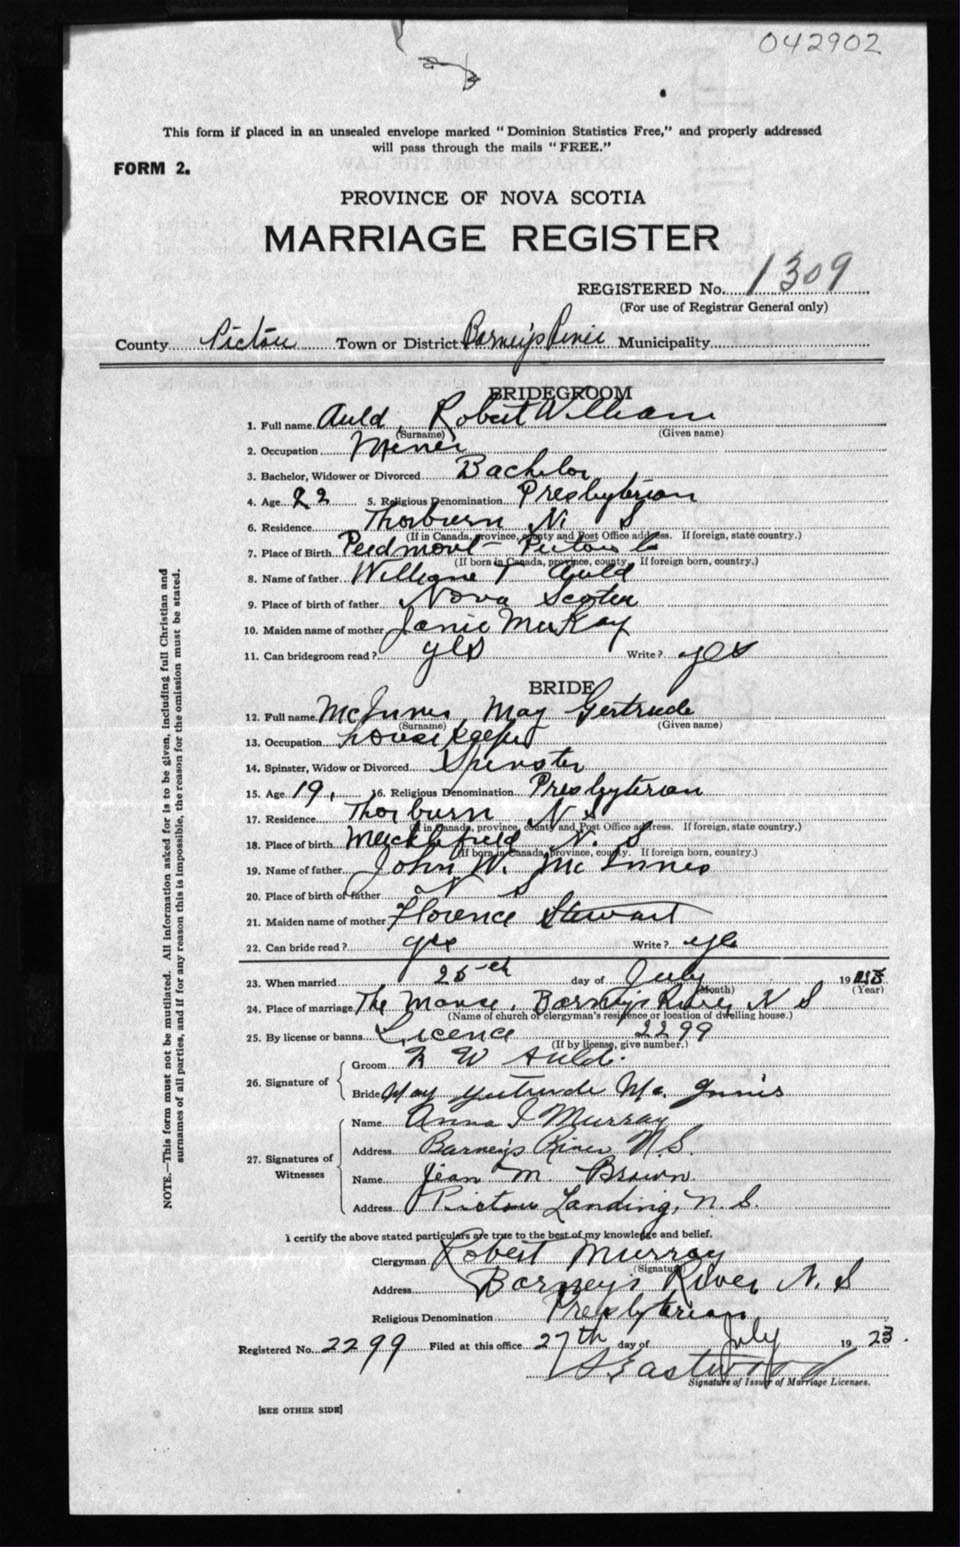 042902
This form if placed in an unsealed envelope marked "Dominion Statistics Free," and properly addressed
will pass through the mails "FREE."
FORM 2.
PROVINCE OF NOVA SCOTIA
MARRIAGE REGISTER
REGISTERED No. 1309
(For use of Registrar General only)
County Pictou Town or District Barney's River Municipality
BRIDEGROOM
1. Full name Auld, Robert William
(Surname) (Given name)
2. Occupation Miner
3. Bachelor, Widower or Divorced Bachelor
4. Age 22 5. Religious Denomination Presbyterian
6. Residence Thorburn N. S
(If in Canada, province, county and Post Office address. If foreign, state country.)
7. Place of Birth Piedmont Pictou Co
(If born in Canada, province, county. If foreign born, country.)
8. Name of father William T Auld
9. Place of birth of father Nova Scotia
10. Maiden name of mother Janie McKay
11. Can bridegroom read? yes Write? yes
BRIDE
12. Full name McInnis, May Gertrude
(Surname) (Given name)
13. Occupation housekeeper
14. Spinster, Widow or Divorced Spinster
15. Age 19, 16. Religious Denomination Presbyterian
17. Residence Thorburn N S
(If in Canada, province, county and Post Office address. If foreign, state country.)
18. Place of birth N. S
(If born in Canada, province, county. If foreign born, country.)
19. Name of father John W. McInnes
20. Place of birth of father N S
21. Maiden name of mother Florence Stewart
22. Can bride read? yes Write? yes
23. When married 25th day of July 1923
(Month) (Year)
24. Place of marriage The Manse, Barney's River N S
(Name of church or clergyman's residence or location of dwelling house.)
25. By license or banns Licence 2299
(If by license, give number.)
26. Signature of Groom R W Auld.
Bride May Gertrude Mc. Innis
27. Signatures of Witnesses Name Anna I Murray
Address Barney's River N.S.
Name Jean M. Brown
Address Pictou Landing, N. S.
I certify the above stated particulars are true to the best of my knowledge and belief.
Clergyman Robert Murray
(Signature)
Address Barneys River N. S
Religious Denomination Presbyterian
Registered No. 2299 Filed at this office 27th day of July 1923.
Eastwood
Signature of Issuer of Marriage Licenses.
[SEE OTHER SIDE]
NOTE.—This form must not be mutilated. All information asked for is to be given, including full Christian and
surnames of all parties, and if for any reason this is impossible, the reason for the omission must be stated.